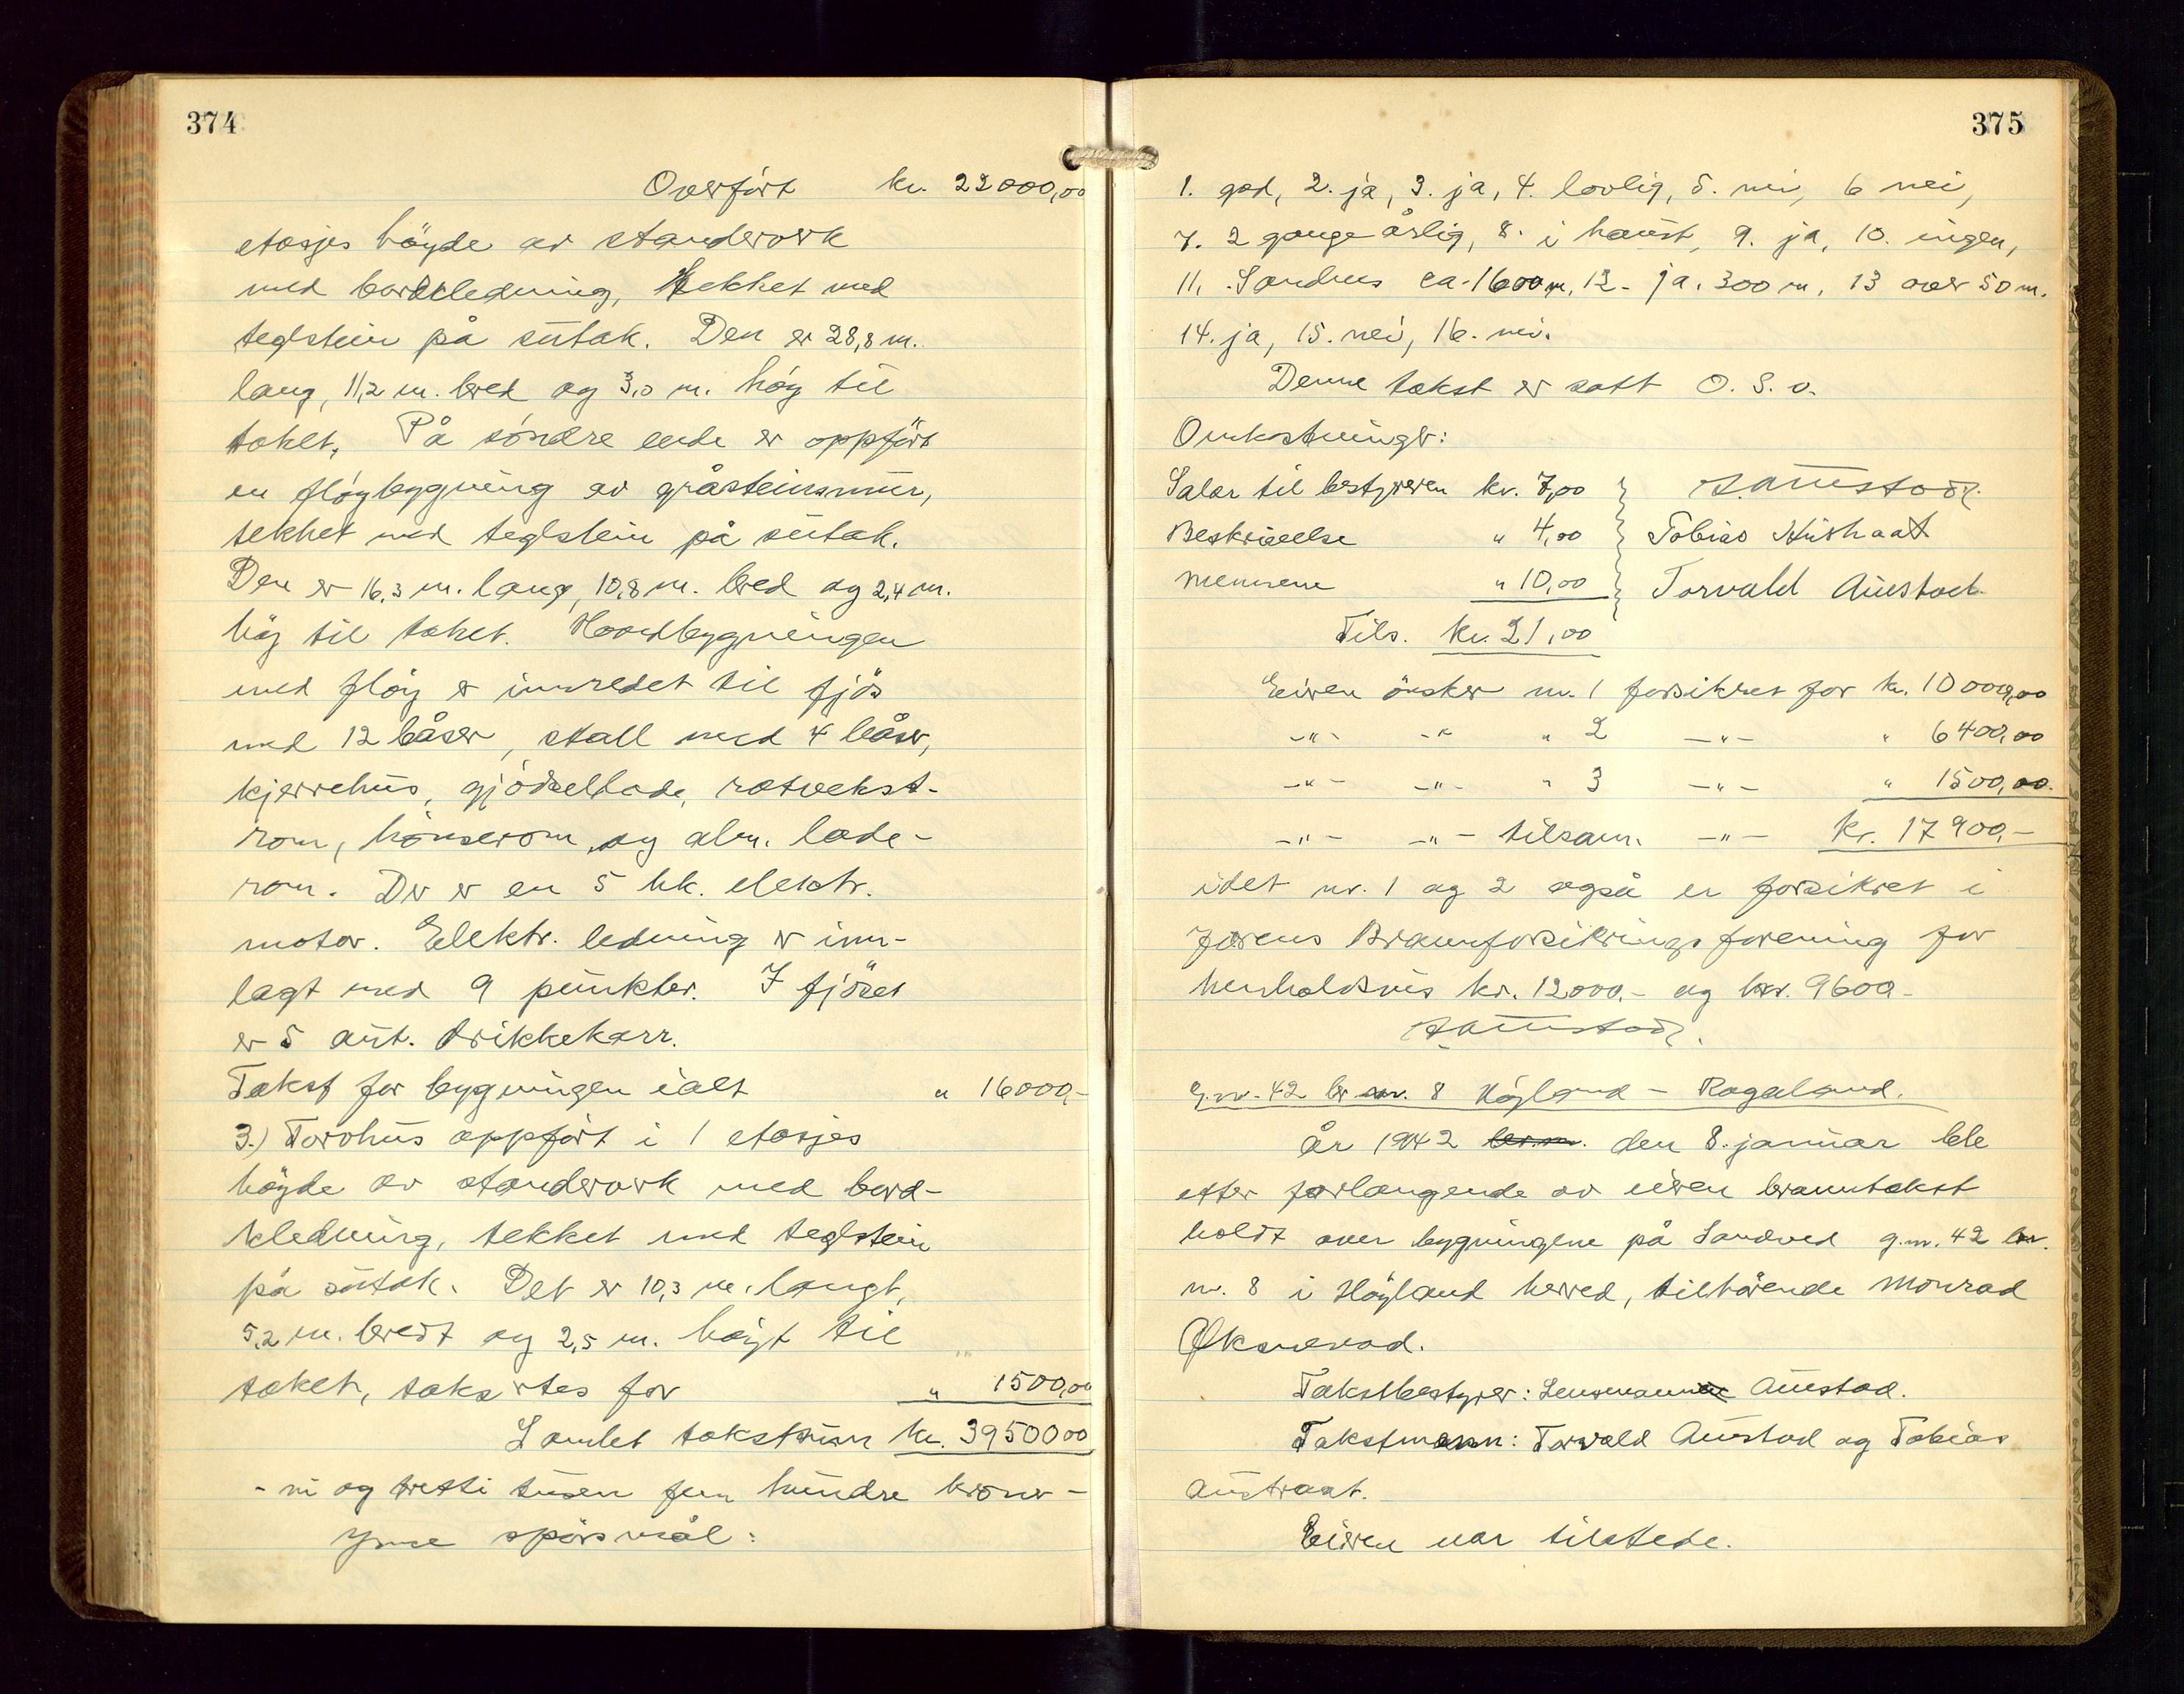 374
Overført kr. 22000,00
etasjes höyde av standerverk
med bordkledning, tekket med
teglstein på sutak. Den er 28,8 m.
lang, 11,2 m. bred og 3,0 m. høg til
taket. På søndre ende er oppført
en fløybygning av gråsteinsmur,
tekket med teglstein på sutak.
Den er 16,3 m. lang, 10,8 m. bred og 2,4 m.
høg til taket. Hovedbygningen
med fløy er innredet til fjös
med 12 båser, stall med 4 båser,
kjerrehus, gjødsellade, rotvekst-
rom, hønserom, og alm. lade-
rom. Der er en 5 hk. elektr.
motor. Elektr. ledning er inn-
lagt med 9 punkter. I fjöset
er 5 aut. drikkekarr.
Takst for bygningen ialt " 16000,-
3.) Torvhus oppført i 1 etasjes
höyde av standerverk med bord-
kledning, tekket med teglstein
på sutak. Det er 10,3 m. langt,
5,2 m. bredt og 2,5 m. høgt til
taket, takstes for " 1500,00
Samlet takstsum kr. 39500 00
- ni og tretti tusen fem hundre kroner -
Ymse spørsmål:
375
1. god, 2. ja, 3. ja, 4. lovlig, 5. nei, 6 nei,
7. 2 gange årlig, 8. i haust, 9. ja, 10. ingen,
11. Sandnes ca. 1600 m, 12. ja. 300 m, 13 over 50 m.
14. ja, 15. nei, 16. nei.
Denne takst er satt O. S. v.
Omkostninger:
Salær til bestyreren kr. 7,00 } Austad
Beskrivelse " 4,00 } Tobias Austraat
Mennene " 10,00 } Torvald Austad
Tils. kr. 21,00
Eieren ønsker nr. 1 forsikret for kr. 10000,00
-"- -"- " 2 -"- " 6400,00
-"- -"- " 3 -"- " 1500,00
-"- -"- tilsam. -"- kr. 17900,-
idet nr. 1 og 2 også er forsikret i
Jærens Brannforsikringsforening for
henholdsvis kr. 12000.- og kr. 9600-
Austad.
G.nr. 42 br.nr. 8 Høyland - Rogaland.
År 1942 den 8. januar ble
etter forlangende av eieren branntakst
holdt over bygningene på Sandved g.nr. 42 br.
nr. 8 i Høyland herred, tilhørende Monrad
Øksnevad.
Takstbestyrer: Lensmannen Austad.
Takstmenn: Torvald Austad og Tobias
Austraat.
Eieren var tilstede.